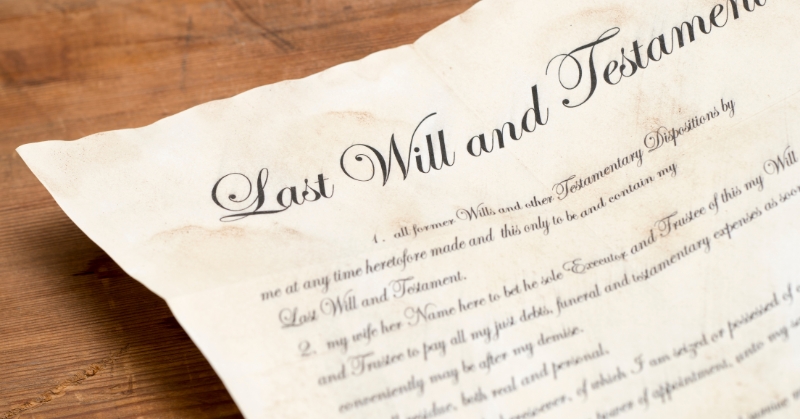 Last Will and Testament
1. all former Wills and other Testamentary Dispositions by
me at any time heretofore made and this only to be and contain my
Last Will and Testament.
2. my wife her Name here to bet he sole Executor and Trustee of this my Will
and Trustee to pay all my just debts, funeral and testamentary expenses as soon
conveniently may be after my demise.
residue, both real and personal,
of which I am seized or possessed of
power of appointment, unto my